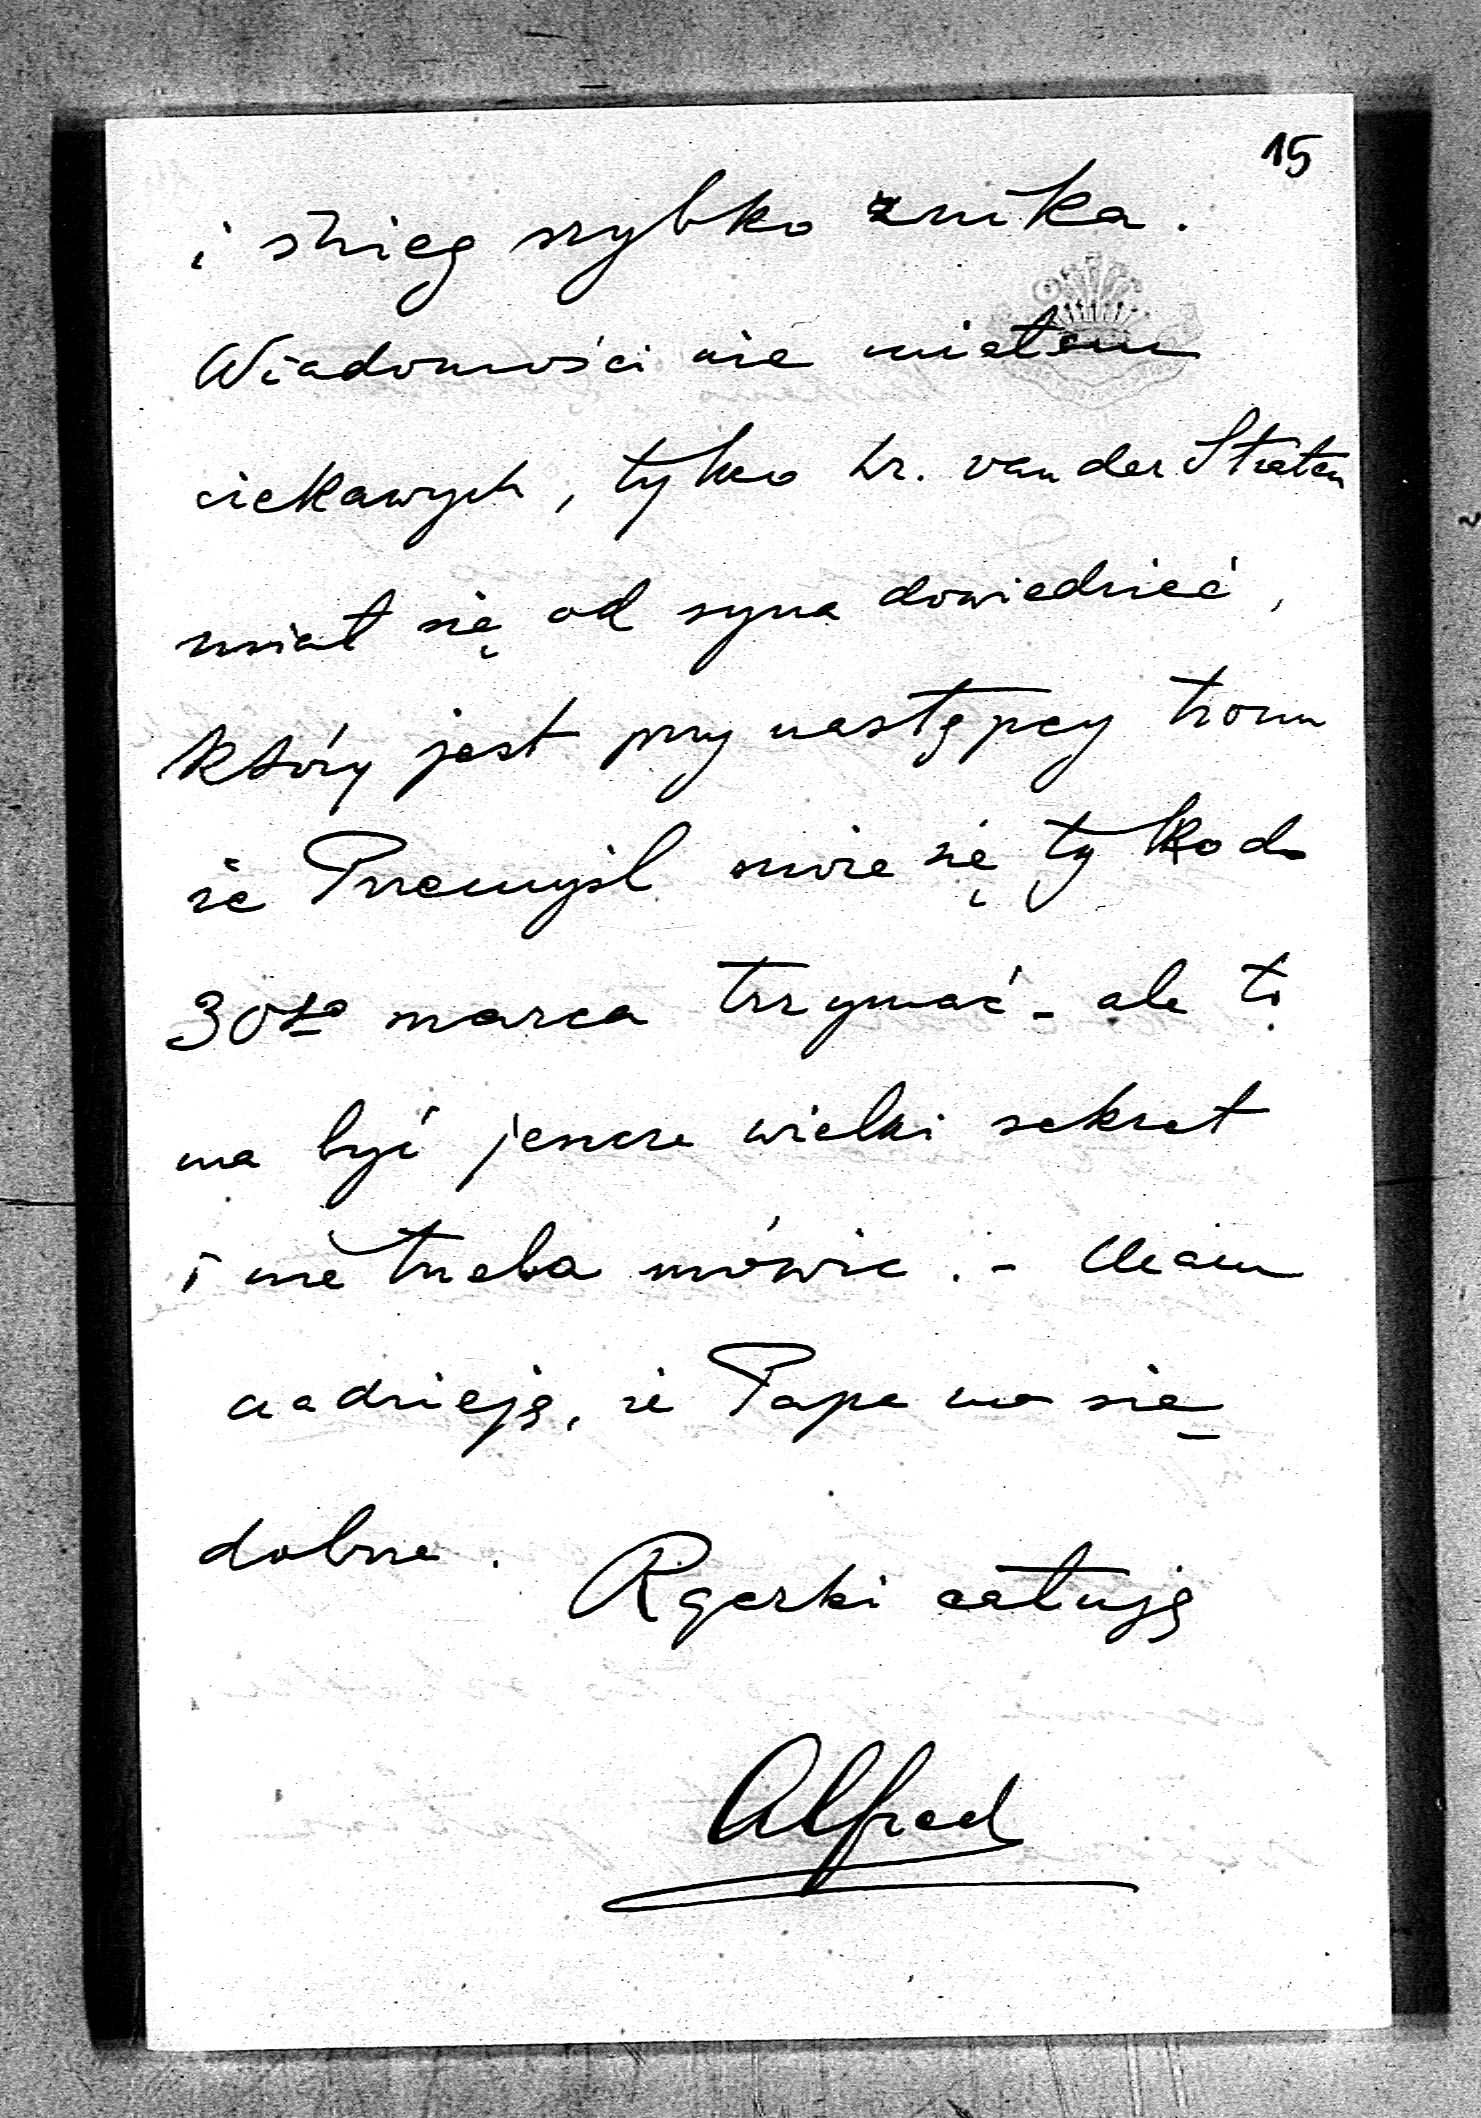 15
i śnieg szybko znika.
Wiadomości nie miałem
ciekawych, tylko hr. van der Straten
miał się od syna dowiedzieć,
który jest przy następcy tronu
że Przemyśl może się tylko do
30go marca trzymać - ale to
ma być jeszcze wielki sekret
i nie trzeba mówić. - Mam
nadzieję, że Papa ma się
dobrze.
Rączki całuję
Alfred